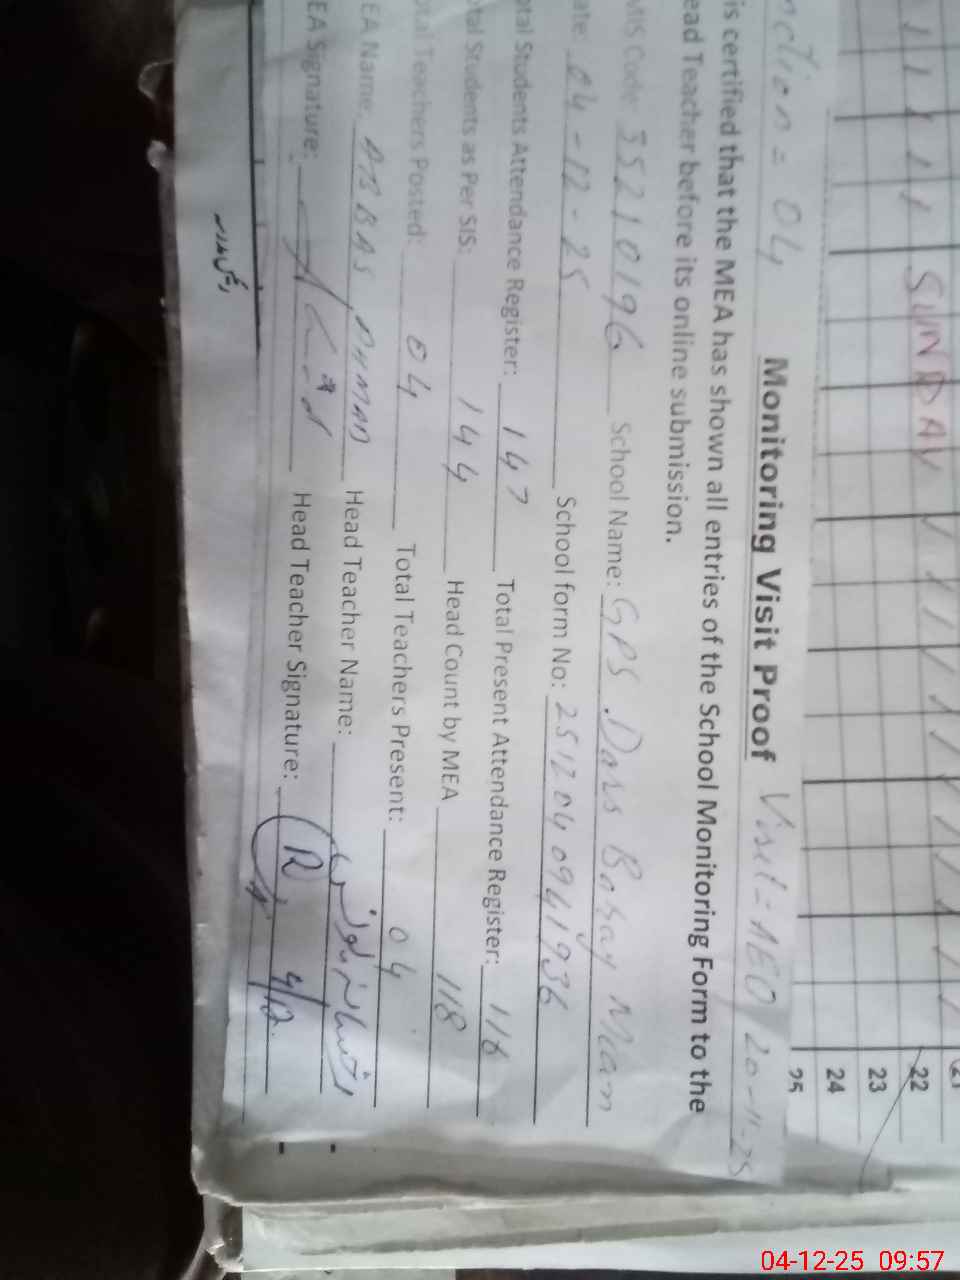 SUNDAY
21
22
23
24
25
nction = 04
Monitoring Visit Proof
Visit = AEO 20-11-25
is certified that the MEA has shown all entries of the School Monitoring Form to the
ead Teacher before its online submission.
MIS Code: 35210196 School Name: GPS. Dars Baray Mian
ate: 04-12-25 School form No: 2512040941936
otal Students Attendance Register: 147 Total Present Attendance Register: 118
otal Students as Per SIS: 144 Head Count by MEA 118
otal Teachers Posted: 04 Total Teachers Present: 04
EA Name: ABBAS AHMAD Head Teacher Name:
EA Signature: Head Teacher Signature: 4/12
04-12-25 09:57